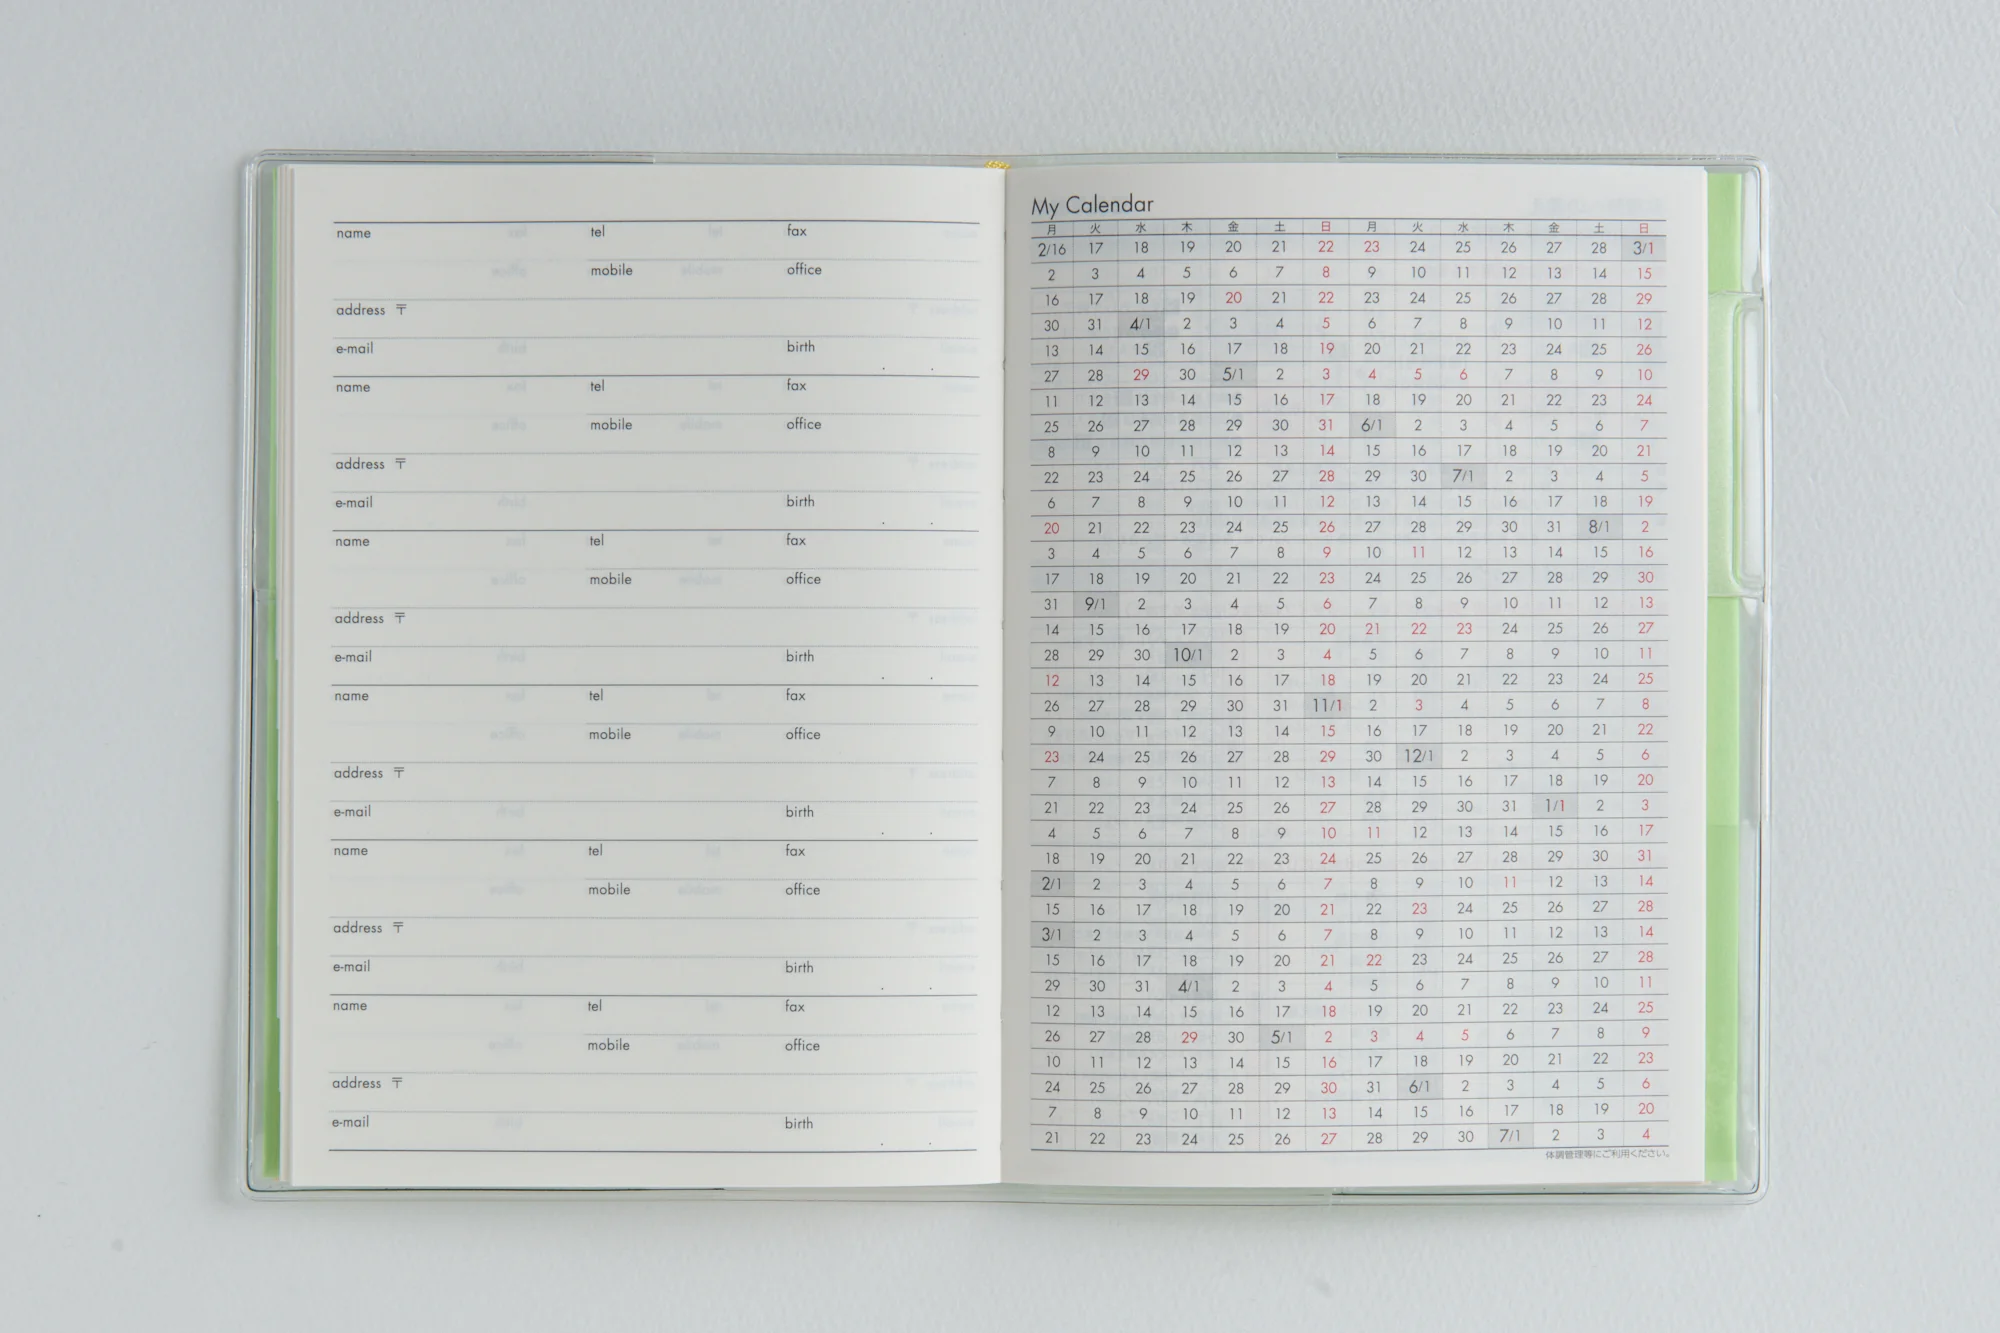 name tel fax
mobile office
address 〒
e-mail birth . .
name tel fax
mobile office
address 〒
e-mail birth . .
name tel fax
mobile office
address 〒
e-mail birth . .
name tel fax
mobile office
address 〒
e-mail birth . .
name tel fax
mobile office
address 〒
e-mail birth . .
name tel fax
mobile office
address 〒
e-mail birth . .
My Calendar
月 火 水 木 金 土 日 月 火 水 木 金 土 日
2/16 17 18 19 20 21 22 23 24 25 26 27 28 3/1
2 3 4 5 6 7 8 9 10 11 12 13 14 15
16 17 18 19 20 21 22 23 24 25 26 27 28 29
30 31 4/1 2 3 4 5 6 7 8 9 10 11 12
13 14 15 16 17 18 19 20 21 22 23 24 25 26
27 28 29 30 5/1 2 3 4 5 6 7 8 9 10
11 12 13 14 15 16 17 18 19 20 21 22 23 24
25 26 27 28 29 30 31 6/1 2 3 4 5 6 7
8 9 10 11 12 13 14 15 16 17 18 19 20 21
22 23 24 25 26 27 28 29 30 7/1 2 3 4 5
6 7 8 9 10 11 12 13 14 15 16 17 18 19
20 21 22 23 24 25 26 27 28 29 30 31 8/1 2
3 4 5 6 7 8 9 10 11 12 13 14 15 16
17 18 19 20 21 22 23 24 25 26 27 28 29 30
31 9/1 2 3 4 5 6 7 8 9 10 11 12 13
14 15 16 17 18 19 20 21 22 23 24 25 26 27
28 29 30 10/1 2 3 4 5 6 7 8 9 10 11
12 13 14 15 16 17 18 19 20 21 22 23 24 25
26 27 28 29 30 31 11/1 2 3 4 5 6 7 8
9 10 11 12 13 14 15 16 17 18 19 20 21 22
23 24 25 26 27 28 29 30 12/1 2 3 4 5 6
7 8 9 10 11 12 13 14 15 16 17 18 19 20
21 22 23 24 25 26 27 28 29 30 31 1/1 2 3
4 5 6 7 8 9 10 11 12 13 14 15 16 17
18 19 20 21 22 23 24 25 26 27 28 29 30 31
2/1 2 3 4 5 6 7 8 9 10 11 12 13 14
15 16 17 18 19 20 21 22 23 24 25 26 27 28
3/1 2 3 4 5 6 7 8 9 10 11 12 13 14
15 16 17 18 19 20 21 22 23 24 25 26 27 28
29 30 31 4/1 2 3 4 5 6 7 8 9 10 11
12 13 14 15 16 17 18 19 20 21 22 23 24 25
26 27 28 29 30 5/1 2 3 4 5 6 7 8 9
10 11 12 13 14 15 16 17 18 19 20 21 22 23
24 25 26 27 28 29 30 31 6/1 2 3 4 5 6
7 8 9 10 11 12 13 14 15 16 17 18 19 20
21 22 23 24 25 26 27 28 29 30 7/1 2 3 4
体調管理等にご利用ください。